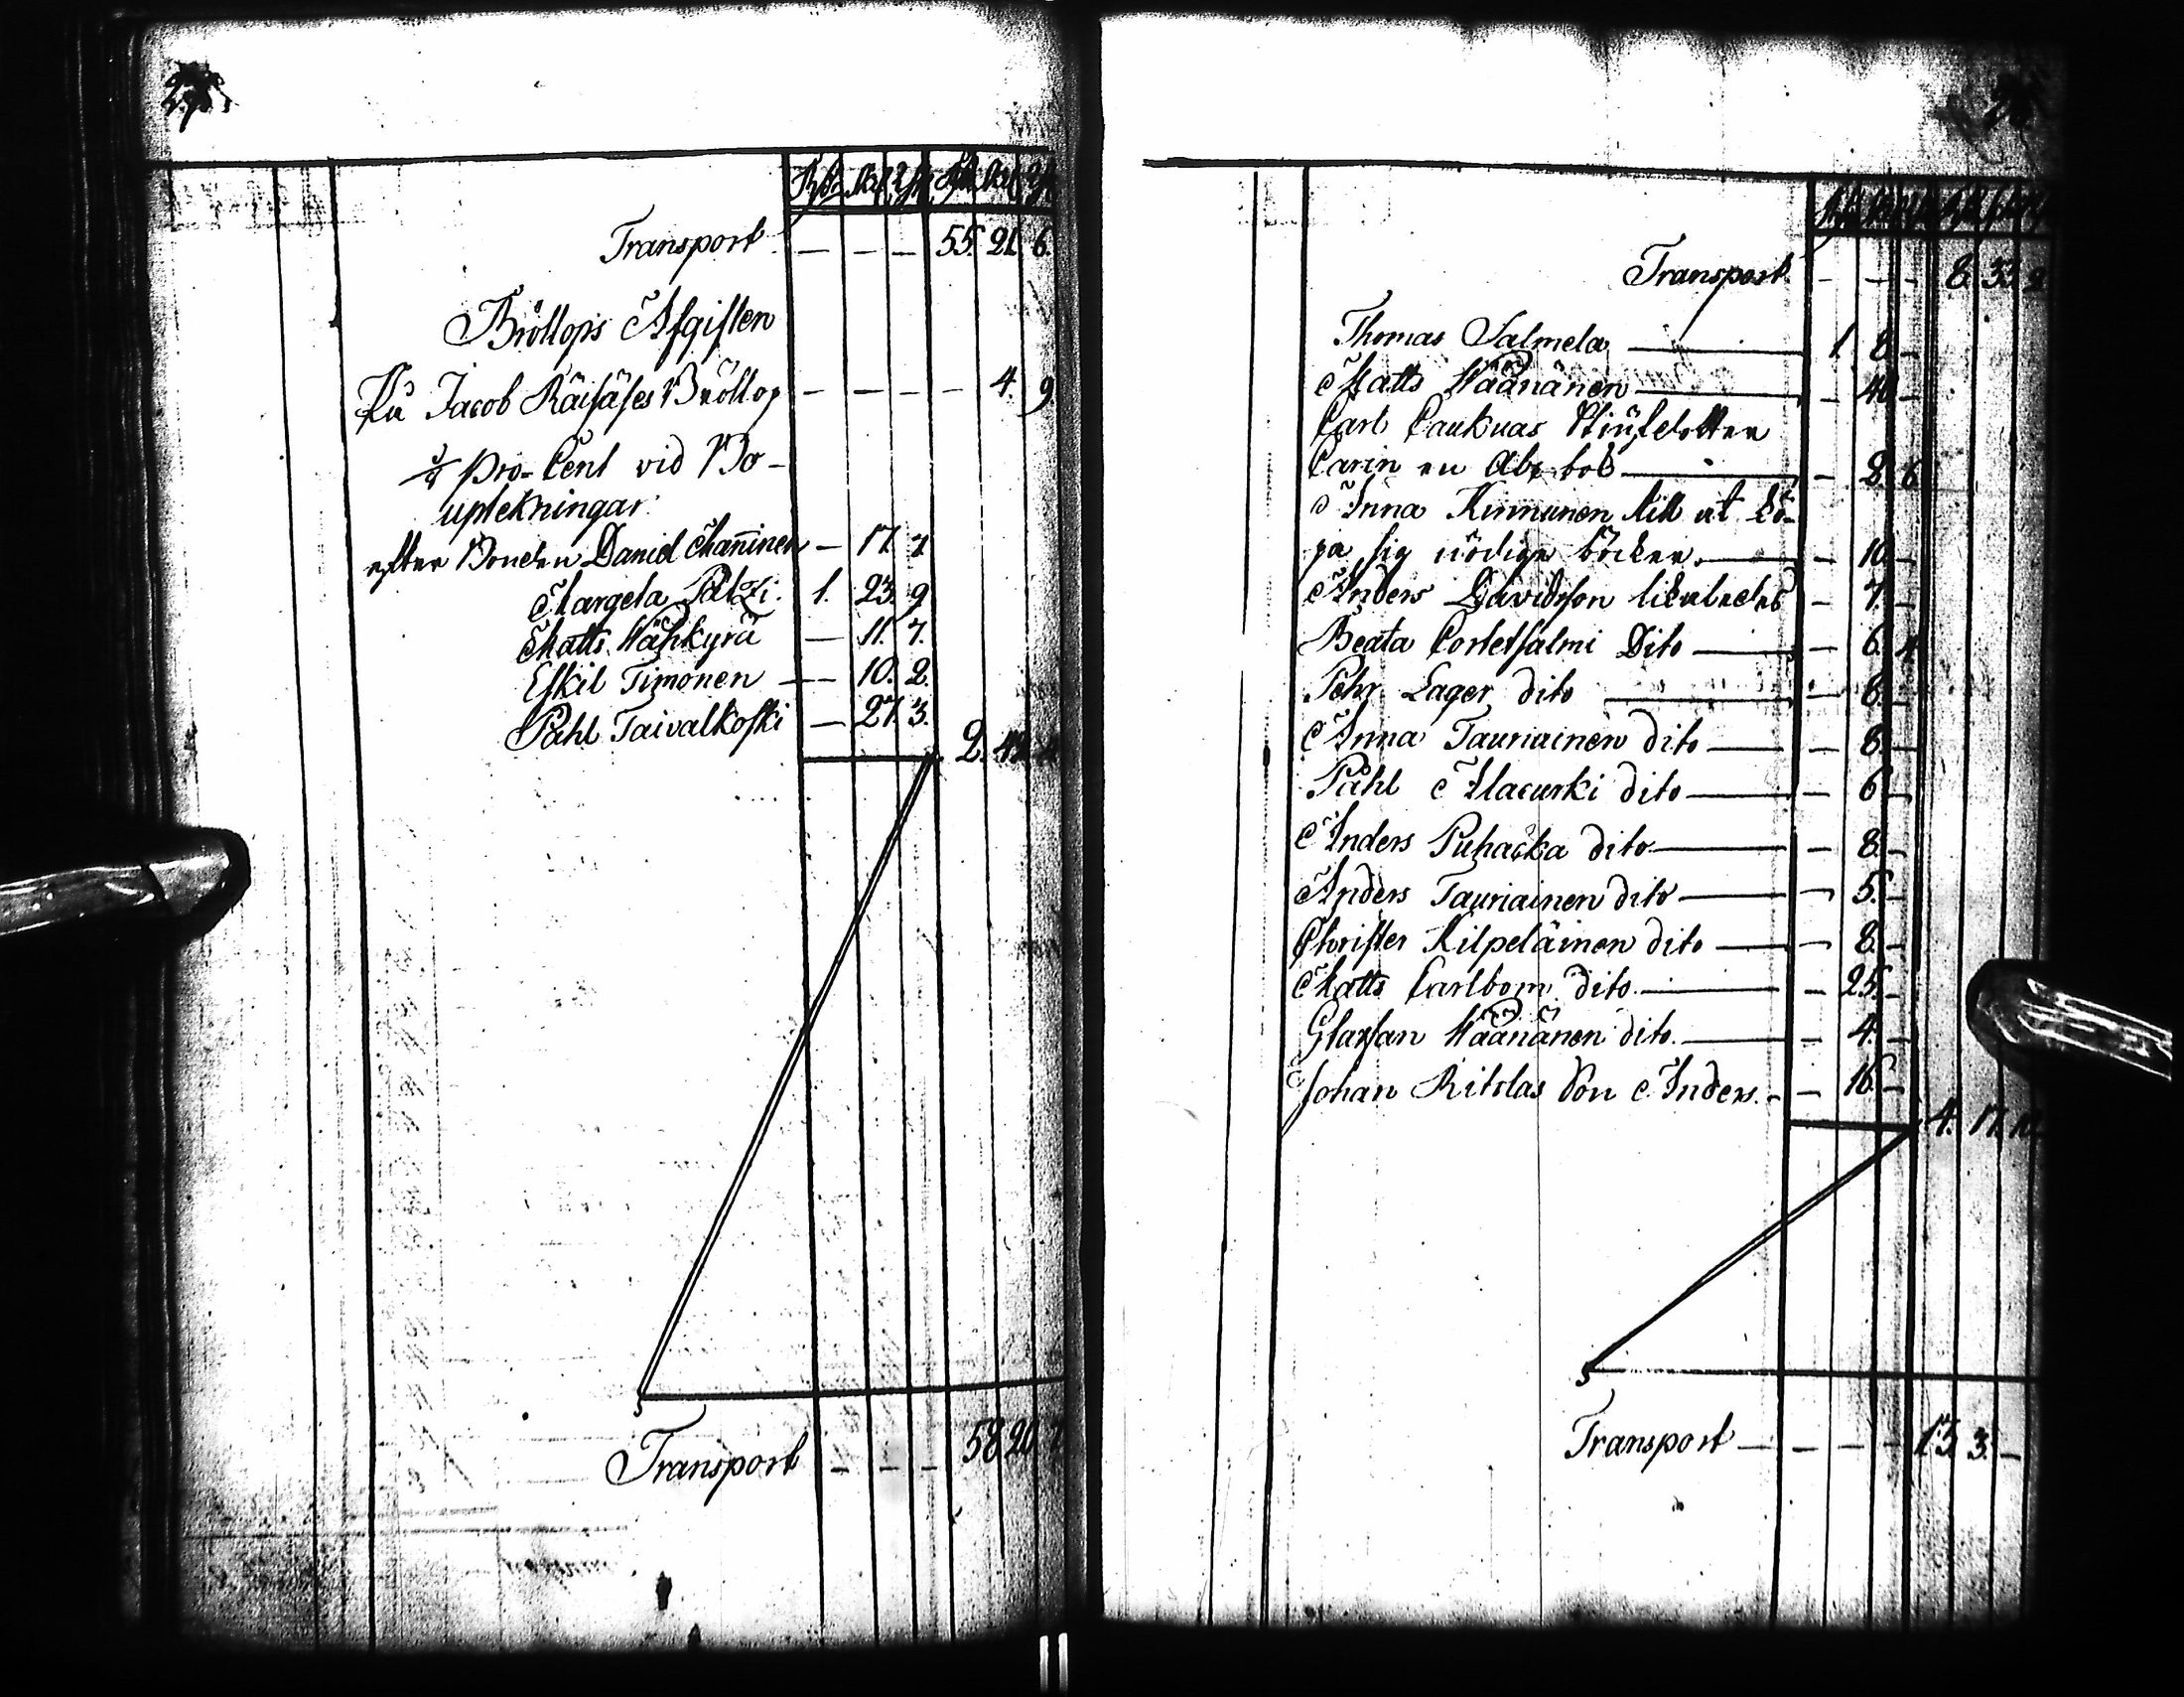 Transport - - - 55. 21. 6.
Bröllops Afgiften
På Jacob Räisäses Bröllop - - - - 4. 9.
Pro-Cent vid Bo-
uptekningar.
efter Bonden Daniel Manninen - 17. 7
Margeta Patzi. 1. 23. 9
Matts Wähkyrä - 11. 7.
Eskil Timonen - 10. 2.
Påhl Taivalkoski - 27. 3.
2.
Transport - - - 58 20 7
Transport - - - 8. 33. 2
Thomas Salmela 1. 8 -
Matts Wäänänen - 40 -
Carl Caukuas
Carin en Abc bok - 2. 6
Anna Kinnunen till at kö-
pa sig nödiga böcker. - 10 -
Anders Davidsson likaledes - 7. -
Beata Cortetsalmi Dito - 6. 4
Pehr Lager dito - 8. -
Anna Tauriainen dito - 8. -
Påhl Alacurki dito - 6 -
Anders Puhacka dito - 8. -
Anders Tauriainen dito - 5. -
Christer Kilpeläinen dito - 8. -
Matts Carlbom dito - 25. -
Staffan Wäänänen dito. - 4. -
Johan Ritolas Son Anders. - 16. -
4. 17. 10
Transport - - - - 13 3. -